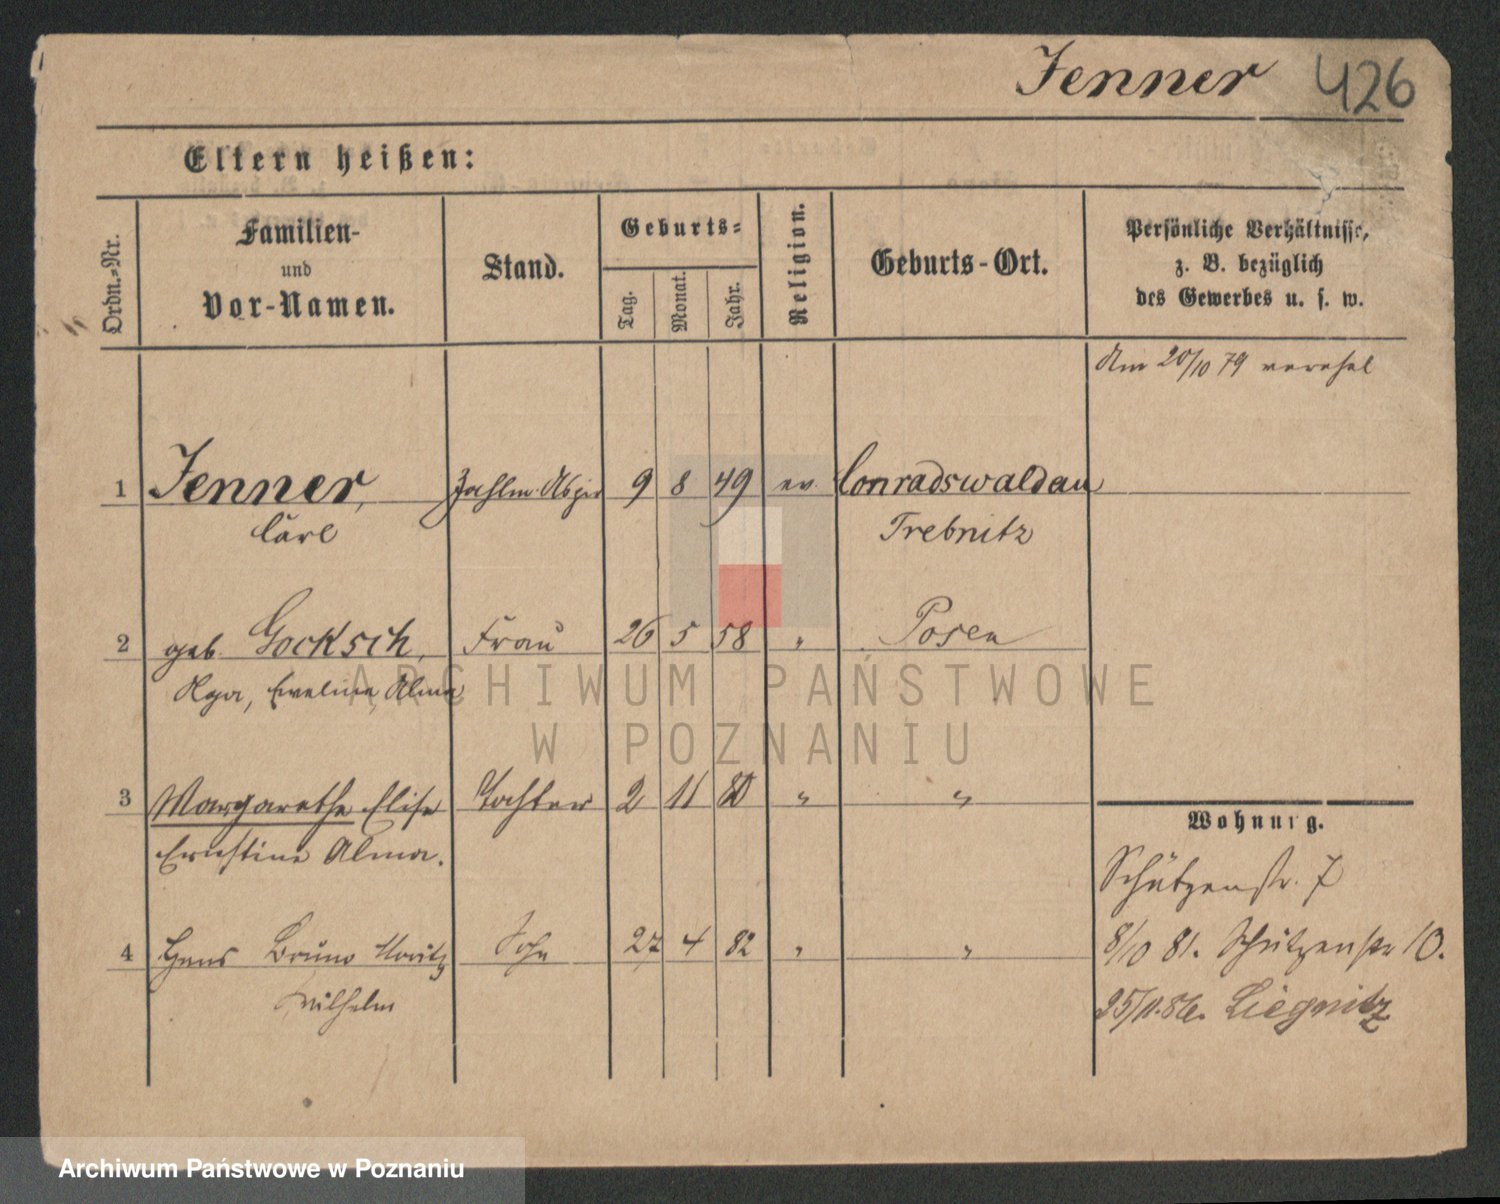 Jenner 426
Eltern heißen:
Ordn.-Nr.
Familien-
und
Vor-Namen.
Stand.
Geburts-
Tag.
Monat.
Jahr.
Religion.
Geburts-Ort.
Persönliche Verhältnisse,
z. B. bezüglich
des Gewerbes u. s. w.
Am 20/10 79 verehel
1 Jenner, Zahlm. Aspir 9 8 49 ev. Conradswaldau
Carl Trebnitz
2 geb. Gocksch, Frau 26 5 58 " Posen
Olga, Eveline, Alma
ARCHIWUM PAŃSTWOWE
W POZNANIU
3 Margarethe Elise Tochter 2 11 80 " "
Ernestine Alma.
Wohnung.
Schützenstr. 7
4 Hans Bruno Moritz Sohn 27 4 82 " " 8/10 81. Schützenstr 10.
Wilhelm 25/11.86. Liegnitz
Archiwum Państwowe w Poznaniu